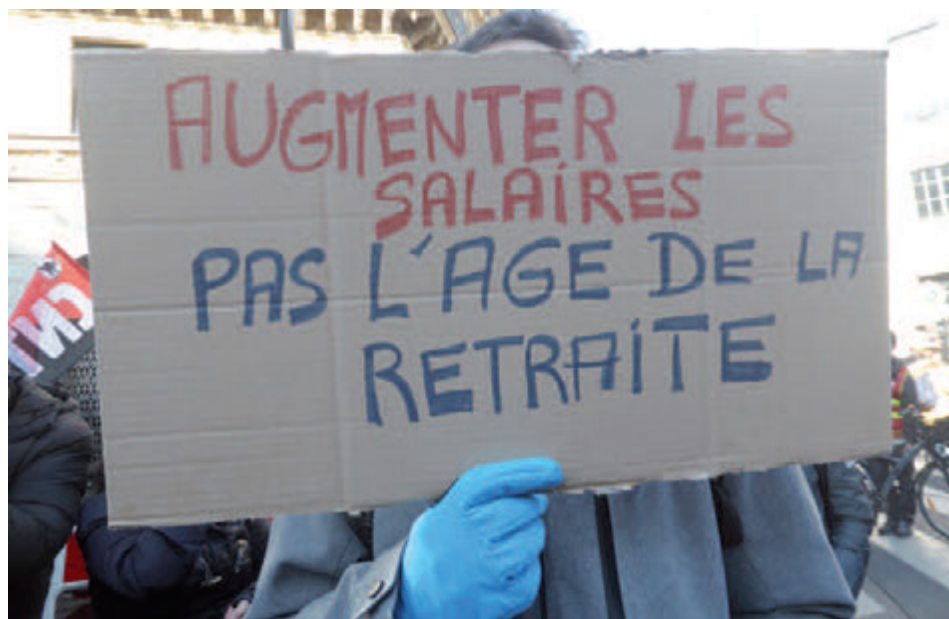 AUGMENTER LES
SALAIRES
PAS L'AGE DE LA
RETRAITE
CNT